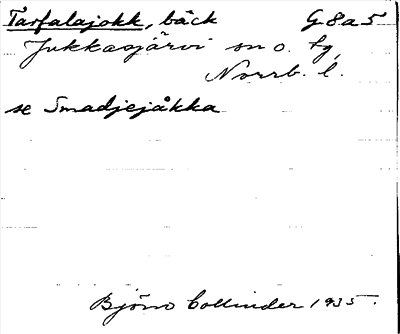 Tarfalajokk, bäck G8a5
Jukkasjärvi sn o. tg,
Norrb. l.
se Smadjejåkka
Björn Collinder 1935.